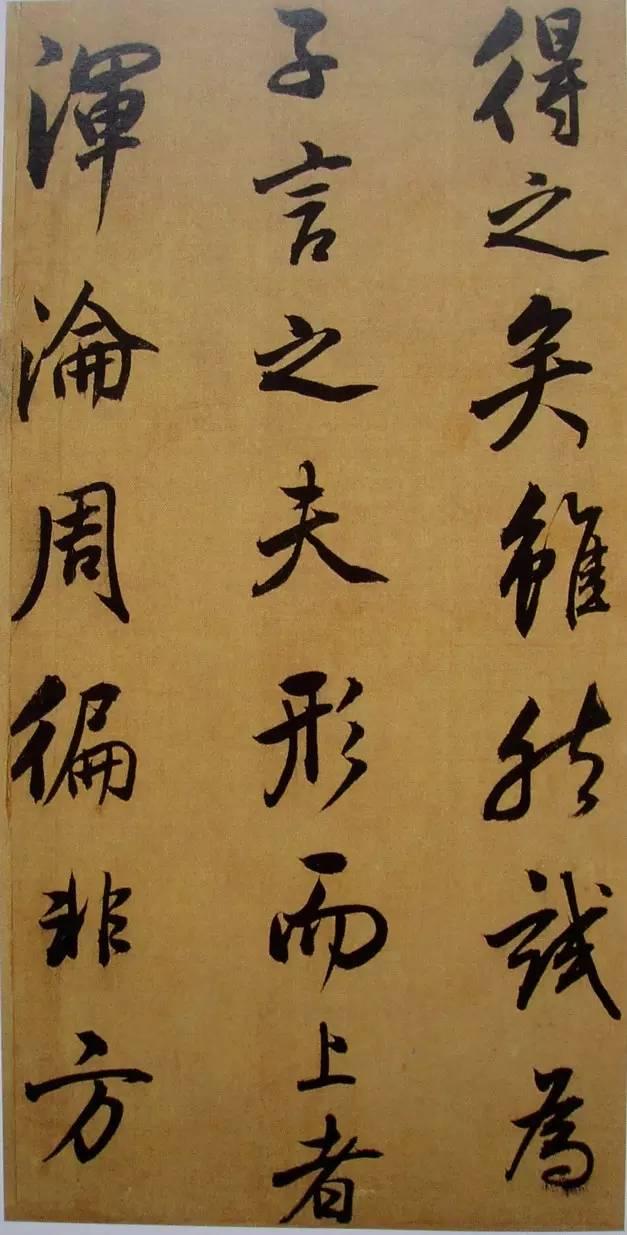 得之矣雖然試為
子言之夫形而上者
渾淪周徧非方